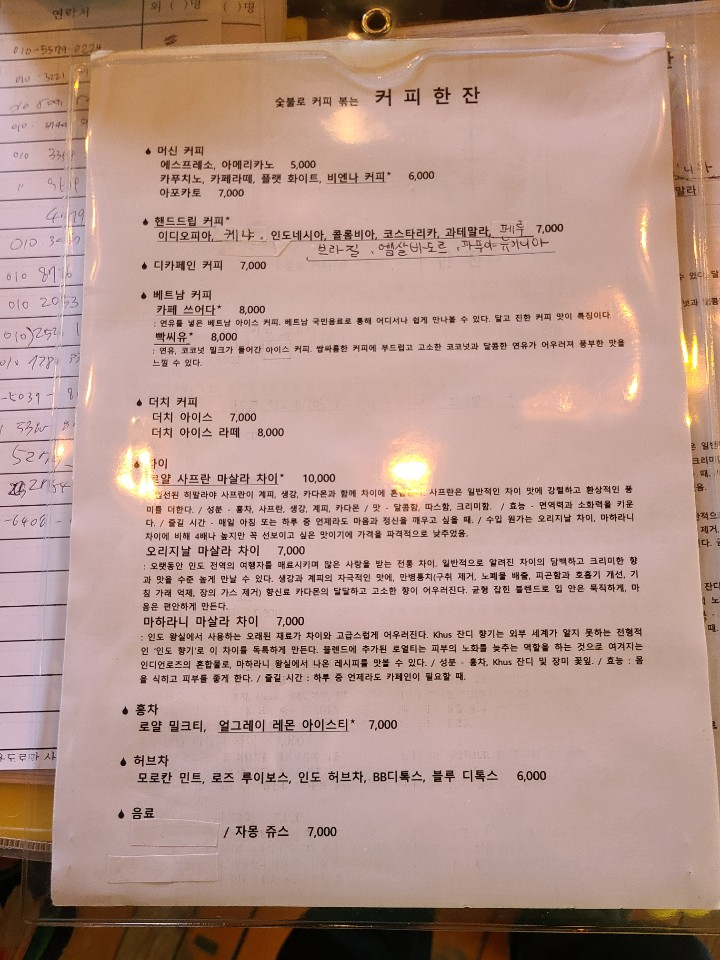 연락처
숯불로 커피 볶는 커피한잔
머신 커피
에스프레소, 아메리카노 5,000
카푸치노, 카페라떼, 플랫 화이트, 비엔나 커피* 6,000
아포카토 7,000
핸드드립 커피*
이디오피아, 케냐, 인도네시아, 콜롬비아, 코스타리카, 과테말라, 페루 7,000
브라질, 엘살바도르, 파푸아뉴기니아
디카페인 커피 7,000
베트남 커피
카페 쓰어다* 8,000
: 연유를 넣은 베트남 아이스 커피. 베트남 국민음료로 통해 어디서나 쉽게 만나볼 수 있다. 달고 진한 커피 맛이 특징이다.
빡씨유* 8,000
: 연유, 코코넛 밀크가 들어간 아이스 커피. 쌉싸름한 커피에 부드럽고 고소한 코코넛과 달콤한 연유가 어우러져 풍부한 맛을
느낄 수 있다.
더치 커피
더치 아이스 7,000
더치 아이스 라떼 8,000
로얄 사프란 마살라 차이* 10,000
히말라야 사프란이 계피, 생강, 카다몬과 함께 차이에 사프란은 일반적인 차이 맛에 강렬하고 환상적인 풍
미를 더한다. / 성분 - 홍차, 사프란, 생강, 계피, 카다몬 / 맛 - 달콤함, 따스함, 크리미함. / 효능 - 면역력과 소화력을 키운
다. / 즐길 시간 - 매일 아침 또는 하루 중 언제라도 마음과 정신을 깨우고 싶을 때. / 수입 원가는 오리지날 차이, 마하라니
차이에 비해 4배나 높지만 꼭 선보이고 싶은 맛이기에 가격을 파격적으로 낮추었음.
오리지날 마살라 차이 7,000
: 오랫동안 인도 전역의 여행자를 매료시키며 많은 사랑을 받는 전통 차이. 일반적으로 알려진 차이의 담백하고 크리미한 향
과 맛을 수준 높게 만날 수 있다. 생강과 계피의 자극적인 맛에, 만병통치(구취 제거, 노폐물 배출, 피곤함과 호흡기 개선, 기
침 가래 억제, 장의 가스 제거) 향신료 카다몬의 달달하고 고소한 향이 어우러진다. 균형 잡힌 블렌드로 입 안은 묵직하게, 마
음은 편안하게 만든다.
마하라니 마살라 차이 7,000
: 인도 왕실에서 사용하는 오래된 재료가 차이와 고급스럽게 어우러진다. Khus 잔디 향기는 외부 세계가 알지 못하는 전형적
인 '인도 향기'로 이 차이를 독특하게 만든다. 블렌드에 추가된 로열티는 피부의 노화를 늦추는 역할을 하는 것으로 여겨지는
인디언로즈의 혼합물로, 마하라니 왕실에서 나온 레시피를 맛볼 수 있다. / 성분 - 홍차, Khus 잔디 및 장미 꽃잎. / 효능 : 몸
을 식히고 피부를 좋게 한다. / 즐길 시간 : 하루 중 언제라도 카페인이 필요할 때.
홍차
로얄 밀크티, 얼그레이 레몬 아이스티* 7,000
허브차
모로칸 민트, 로즈 루이보스, 인도 허브차, BB디톡스, 블루 디톡스 6,000
음료
/ 자몽 쥬스 7,000